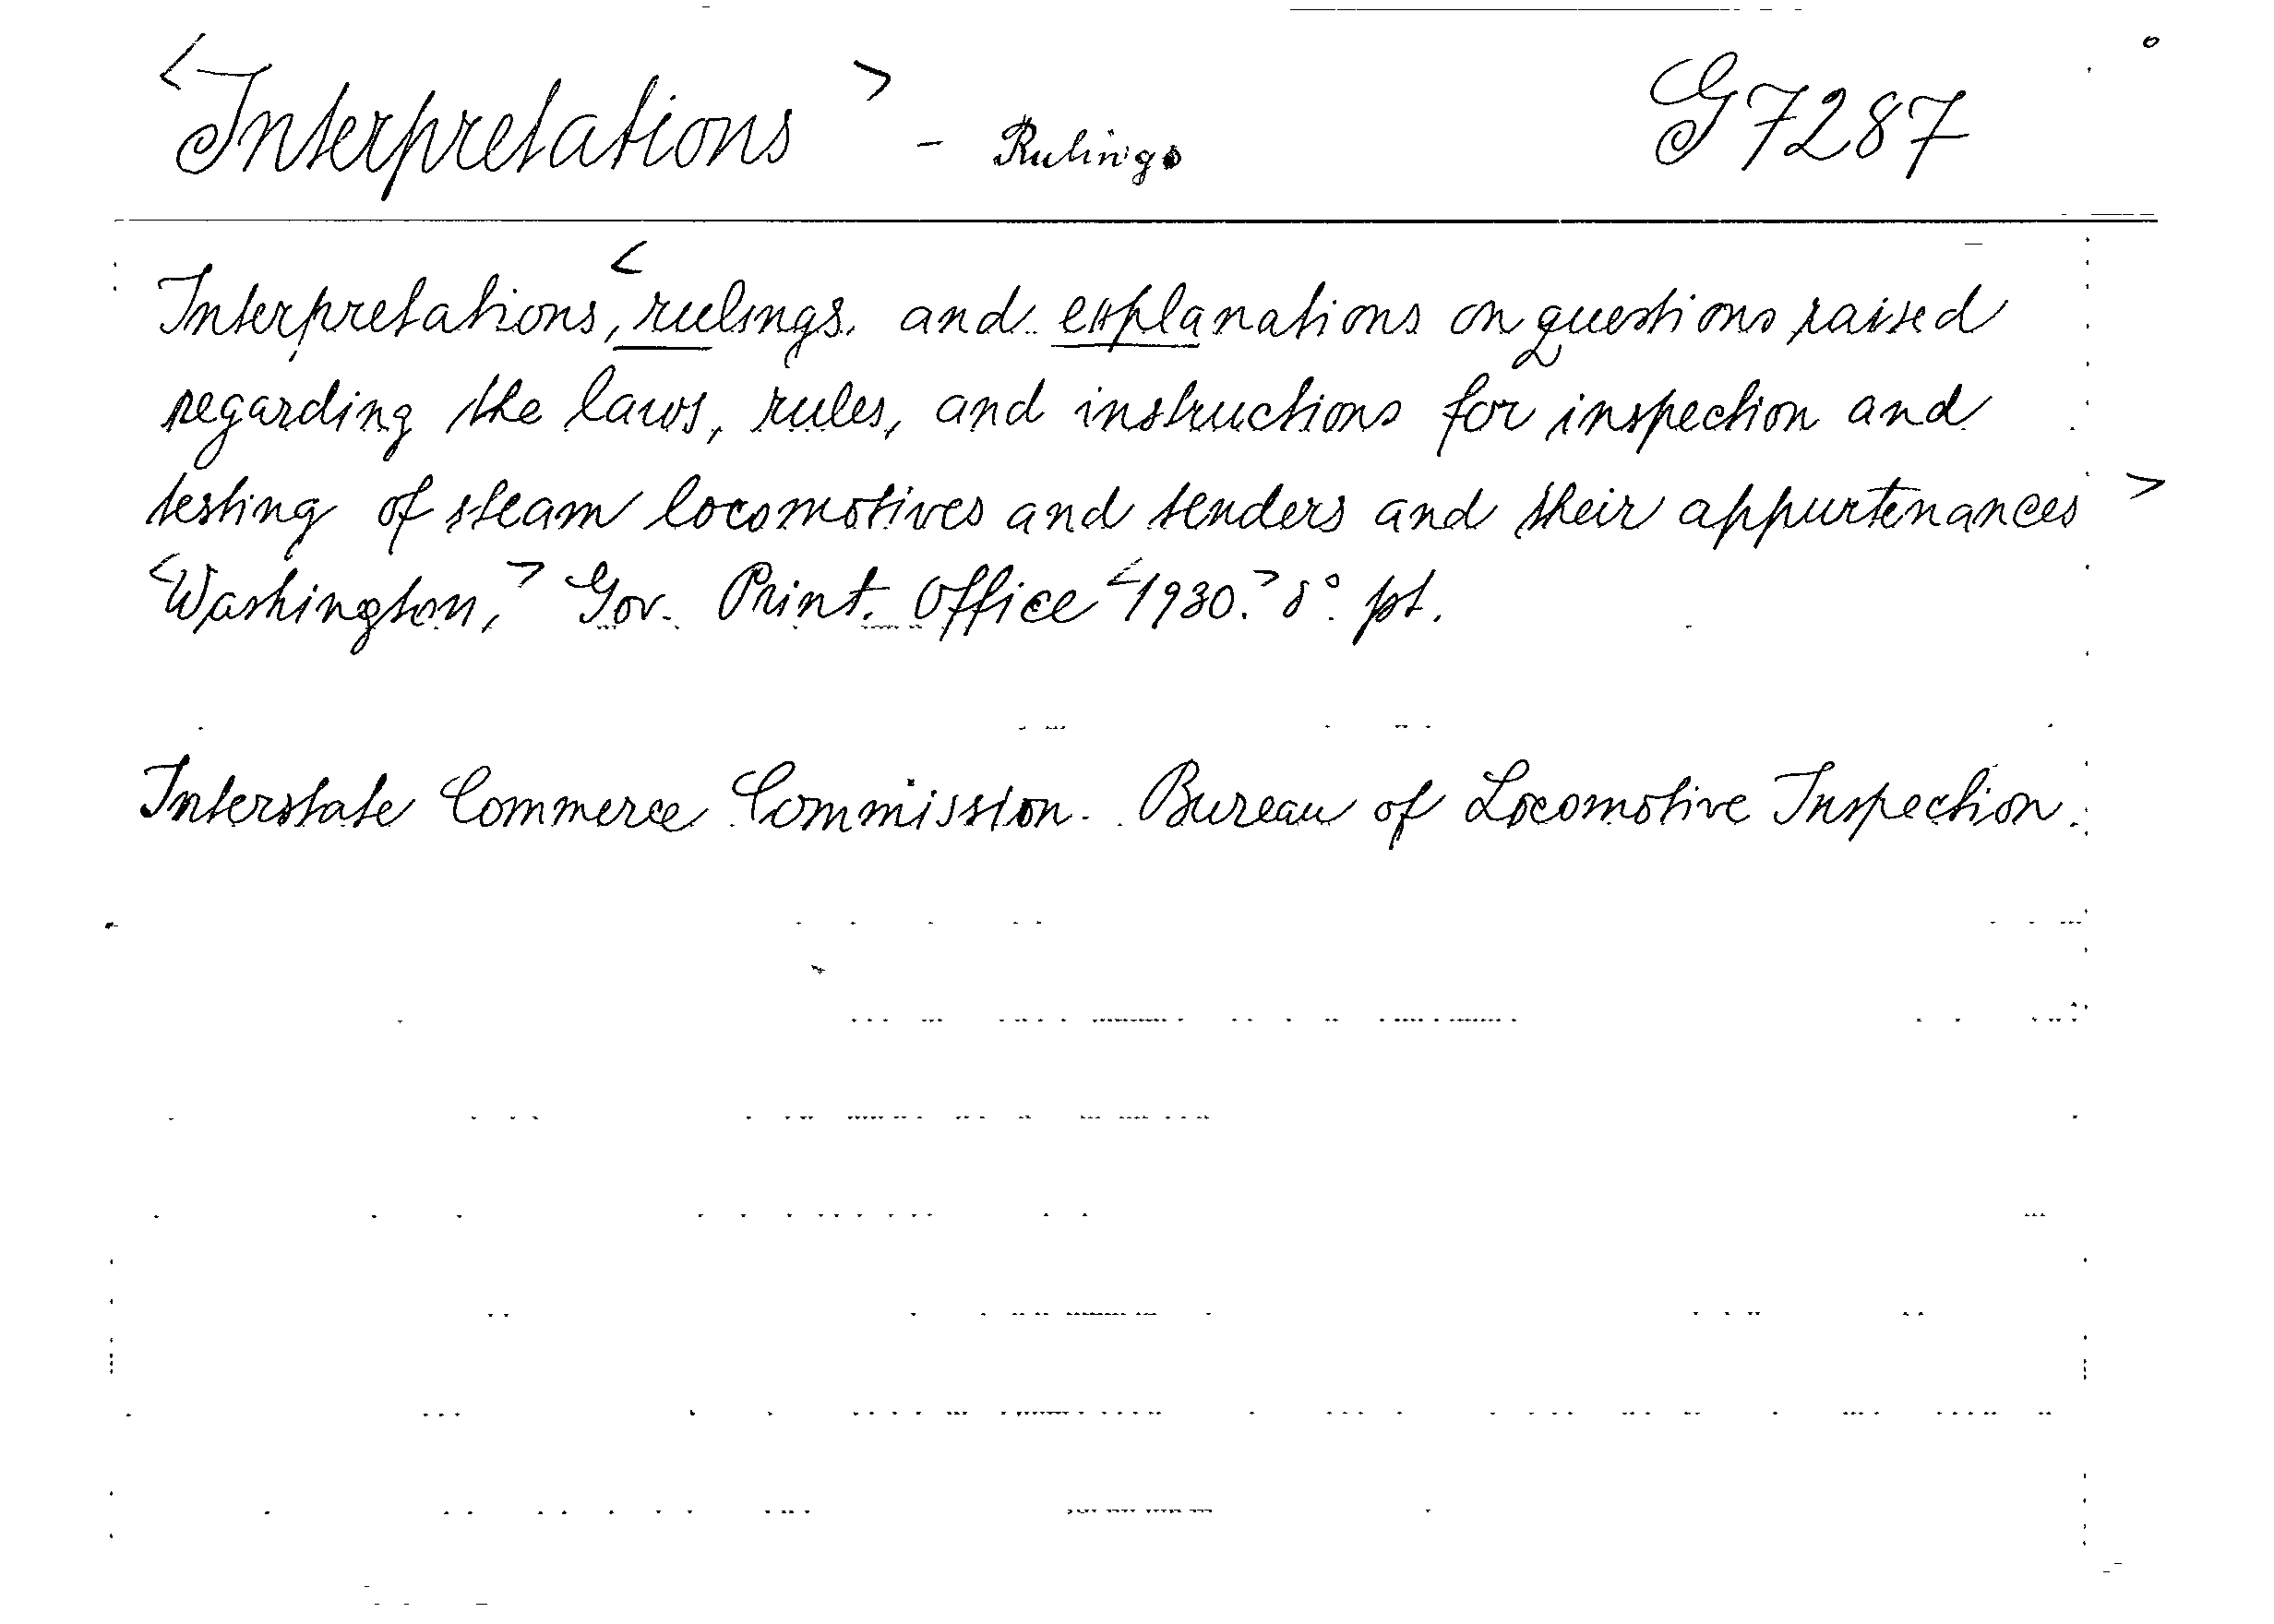 <Interpretations> - Rulings G7287
Interpretations, <rulings, and explanations on questions raised
regarding the laws, rules, and instructions for inspection and
testing of steam locomotives and tenders and their appurtenances>
<Washington,> Gov. Print. Office <1930.> 8° pt.
Interstate Commerce Commission. Bureau of Locomotive Inspection.